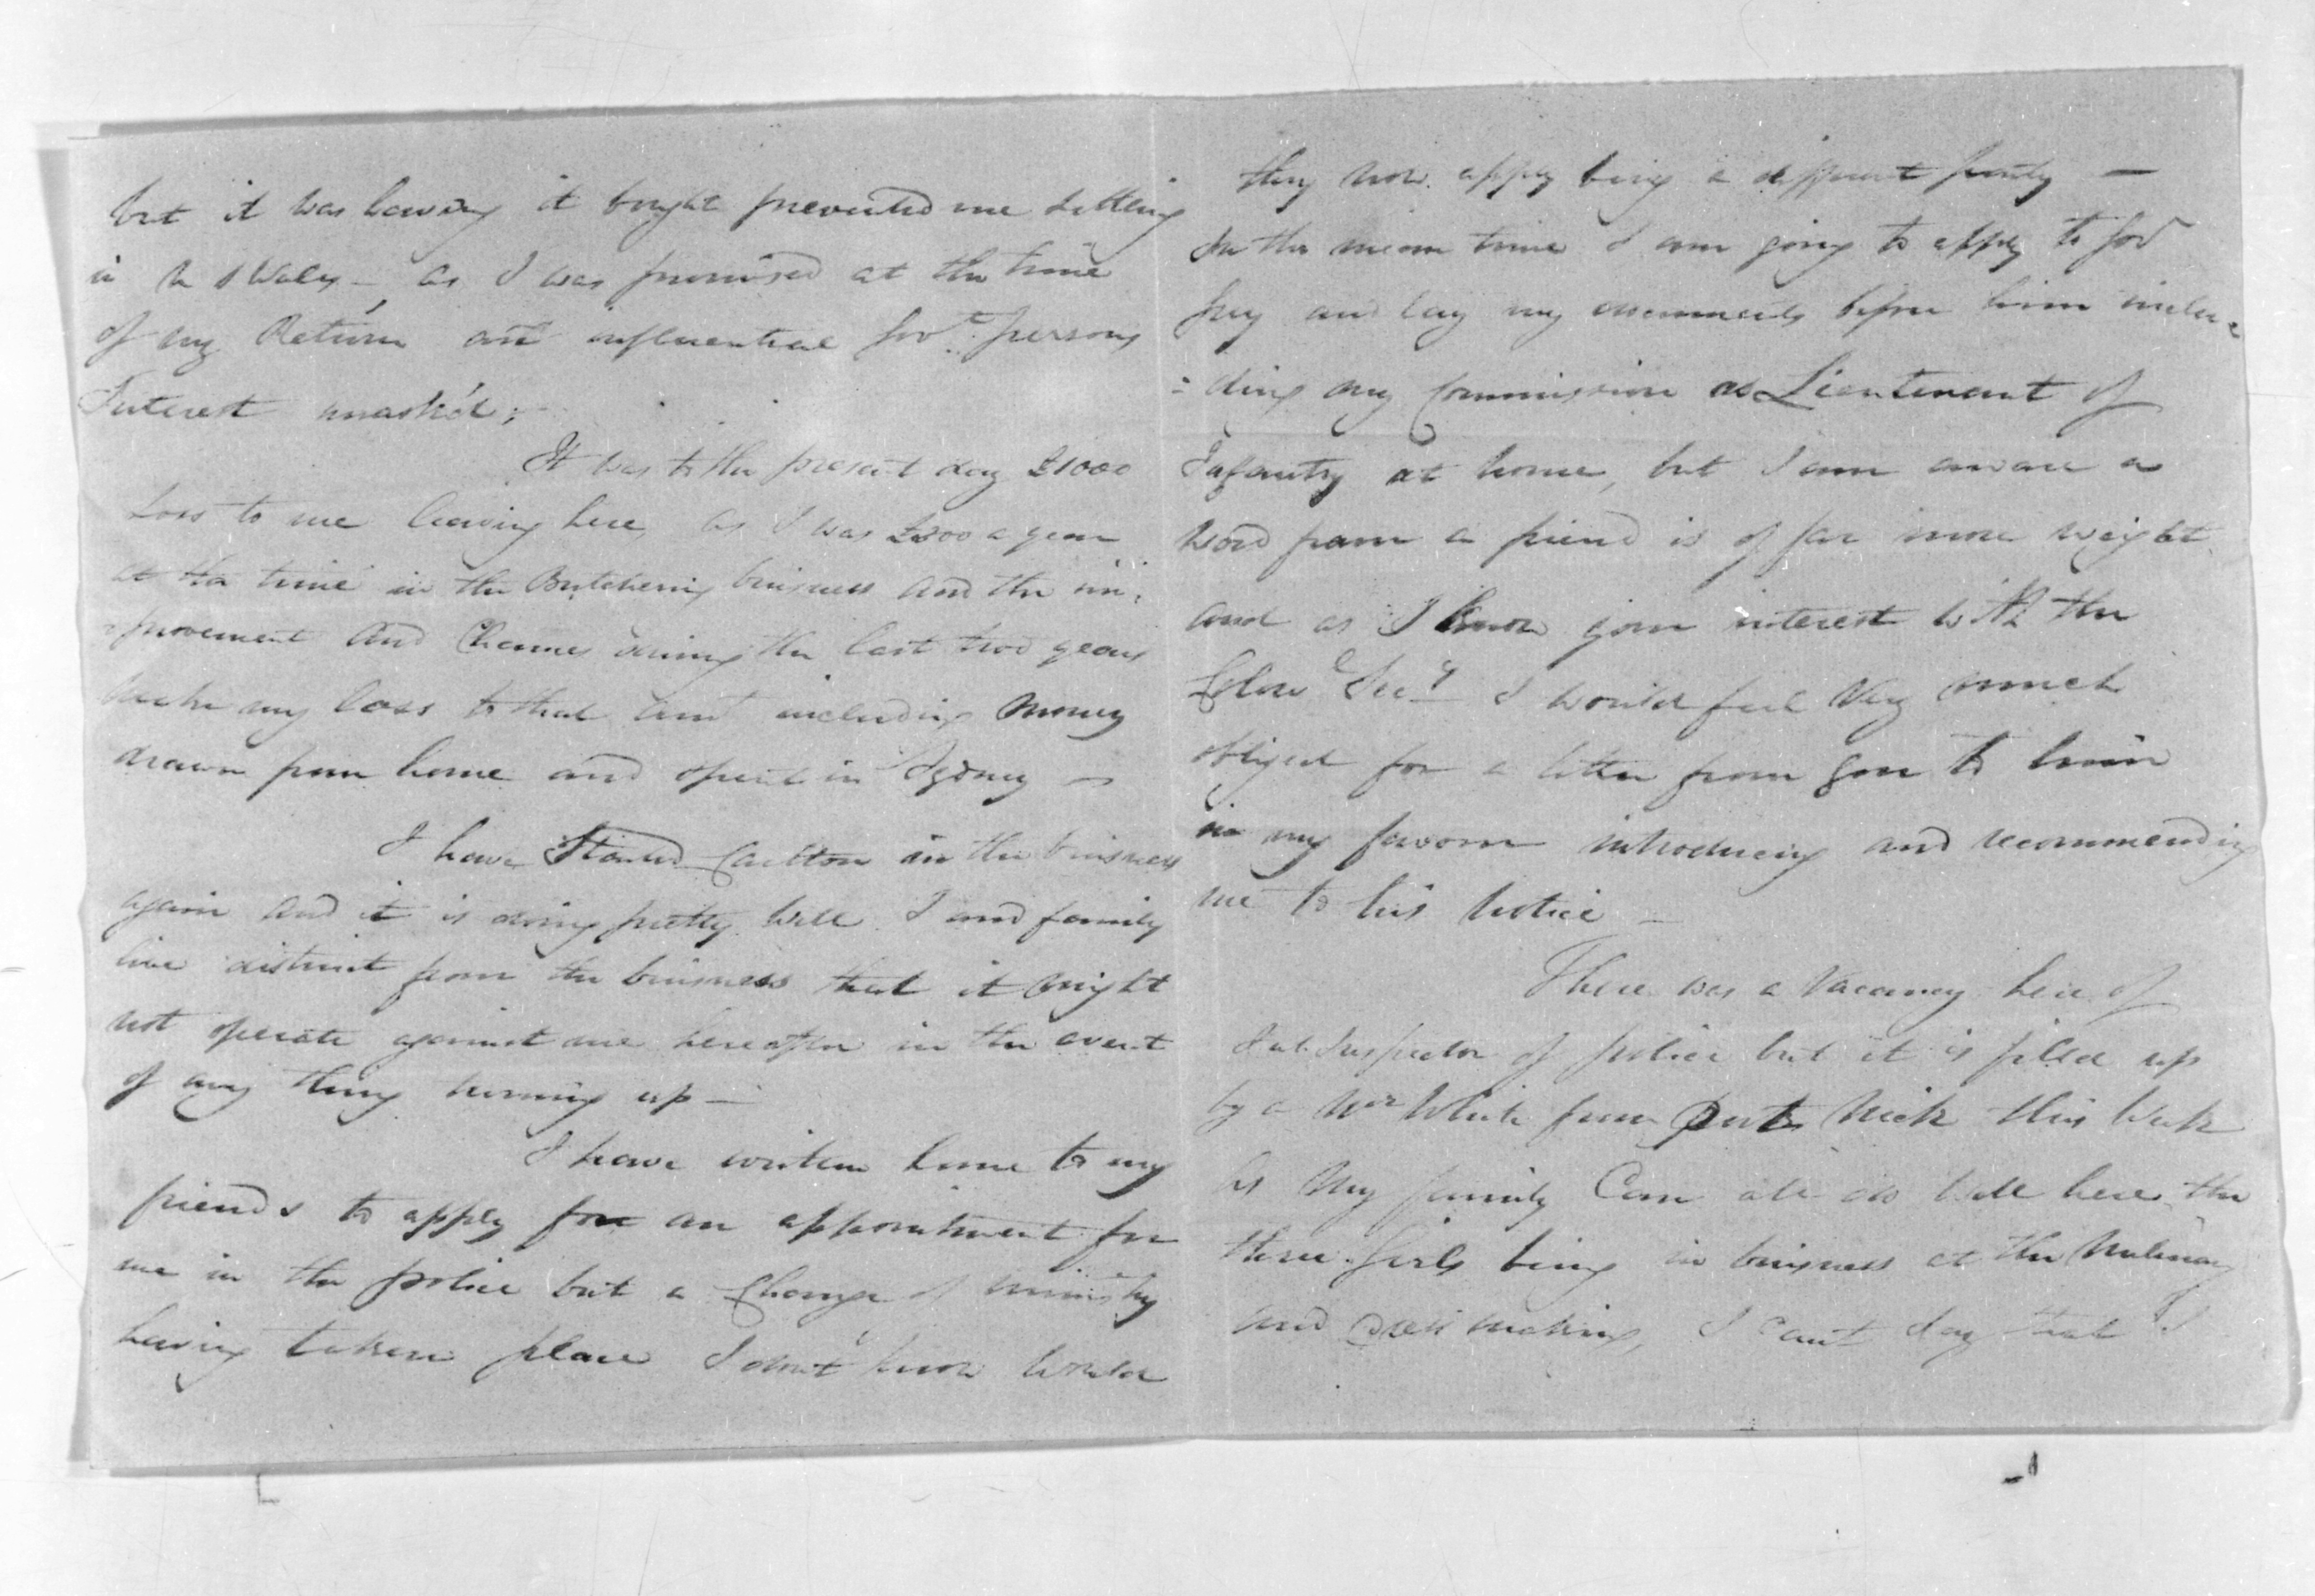 but it was having it bought prevented me settling
in N S Wales - as I was promised at the time
of my Return and influential Govt. persons
Interest unask'd;
It was to the present day £1000
Loss to me leaving here, as I was £300 a year
at the time in the Butchering buisness and the im:
=provement and Chances during the last two years
make my loss to that amt including money
drawn from home and spent in Sydney -
I have Started Carlton in the buisness
again and it is doing pretty well. I and family
live distinct from the buisness that it might
not operate against me hereafter in the event
of any thing turning up -
I have written home to my
friends to apply for an appointment for
me in the police but a Change of ministry
having taken place I don't know would
they now apply being a different party -
In the mean time I am going to apply to Govr
Grey and lay my documents before him inclu=
=ding my Commission as Lieutenant of
Infantry at home, but I am aware a
word from a friend is of far more weight
and as I know your interest with the
Colol. Secy. I would feel very much
obliged for a letter from you to him
in my favour introducing and recommending
me to his notice -
There was a vacancy here of
Sub Inspector of police but it is filled up
by a Mr White from Port Nick this Week
As My family Can do so well here, the
three Girls being in buisness at the Milinary
and Dress making, I can't say that I'd